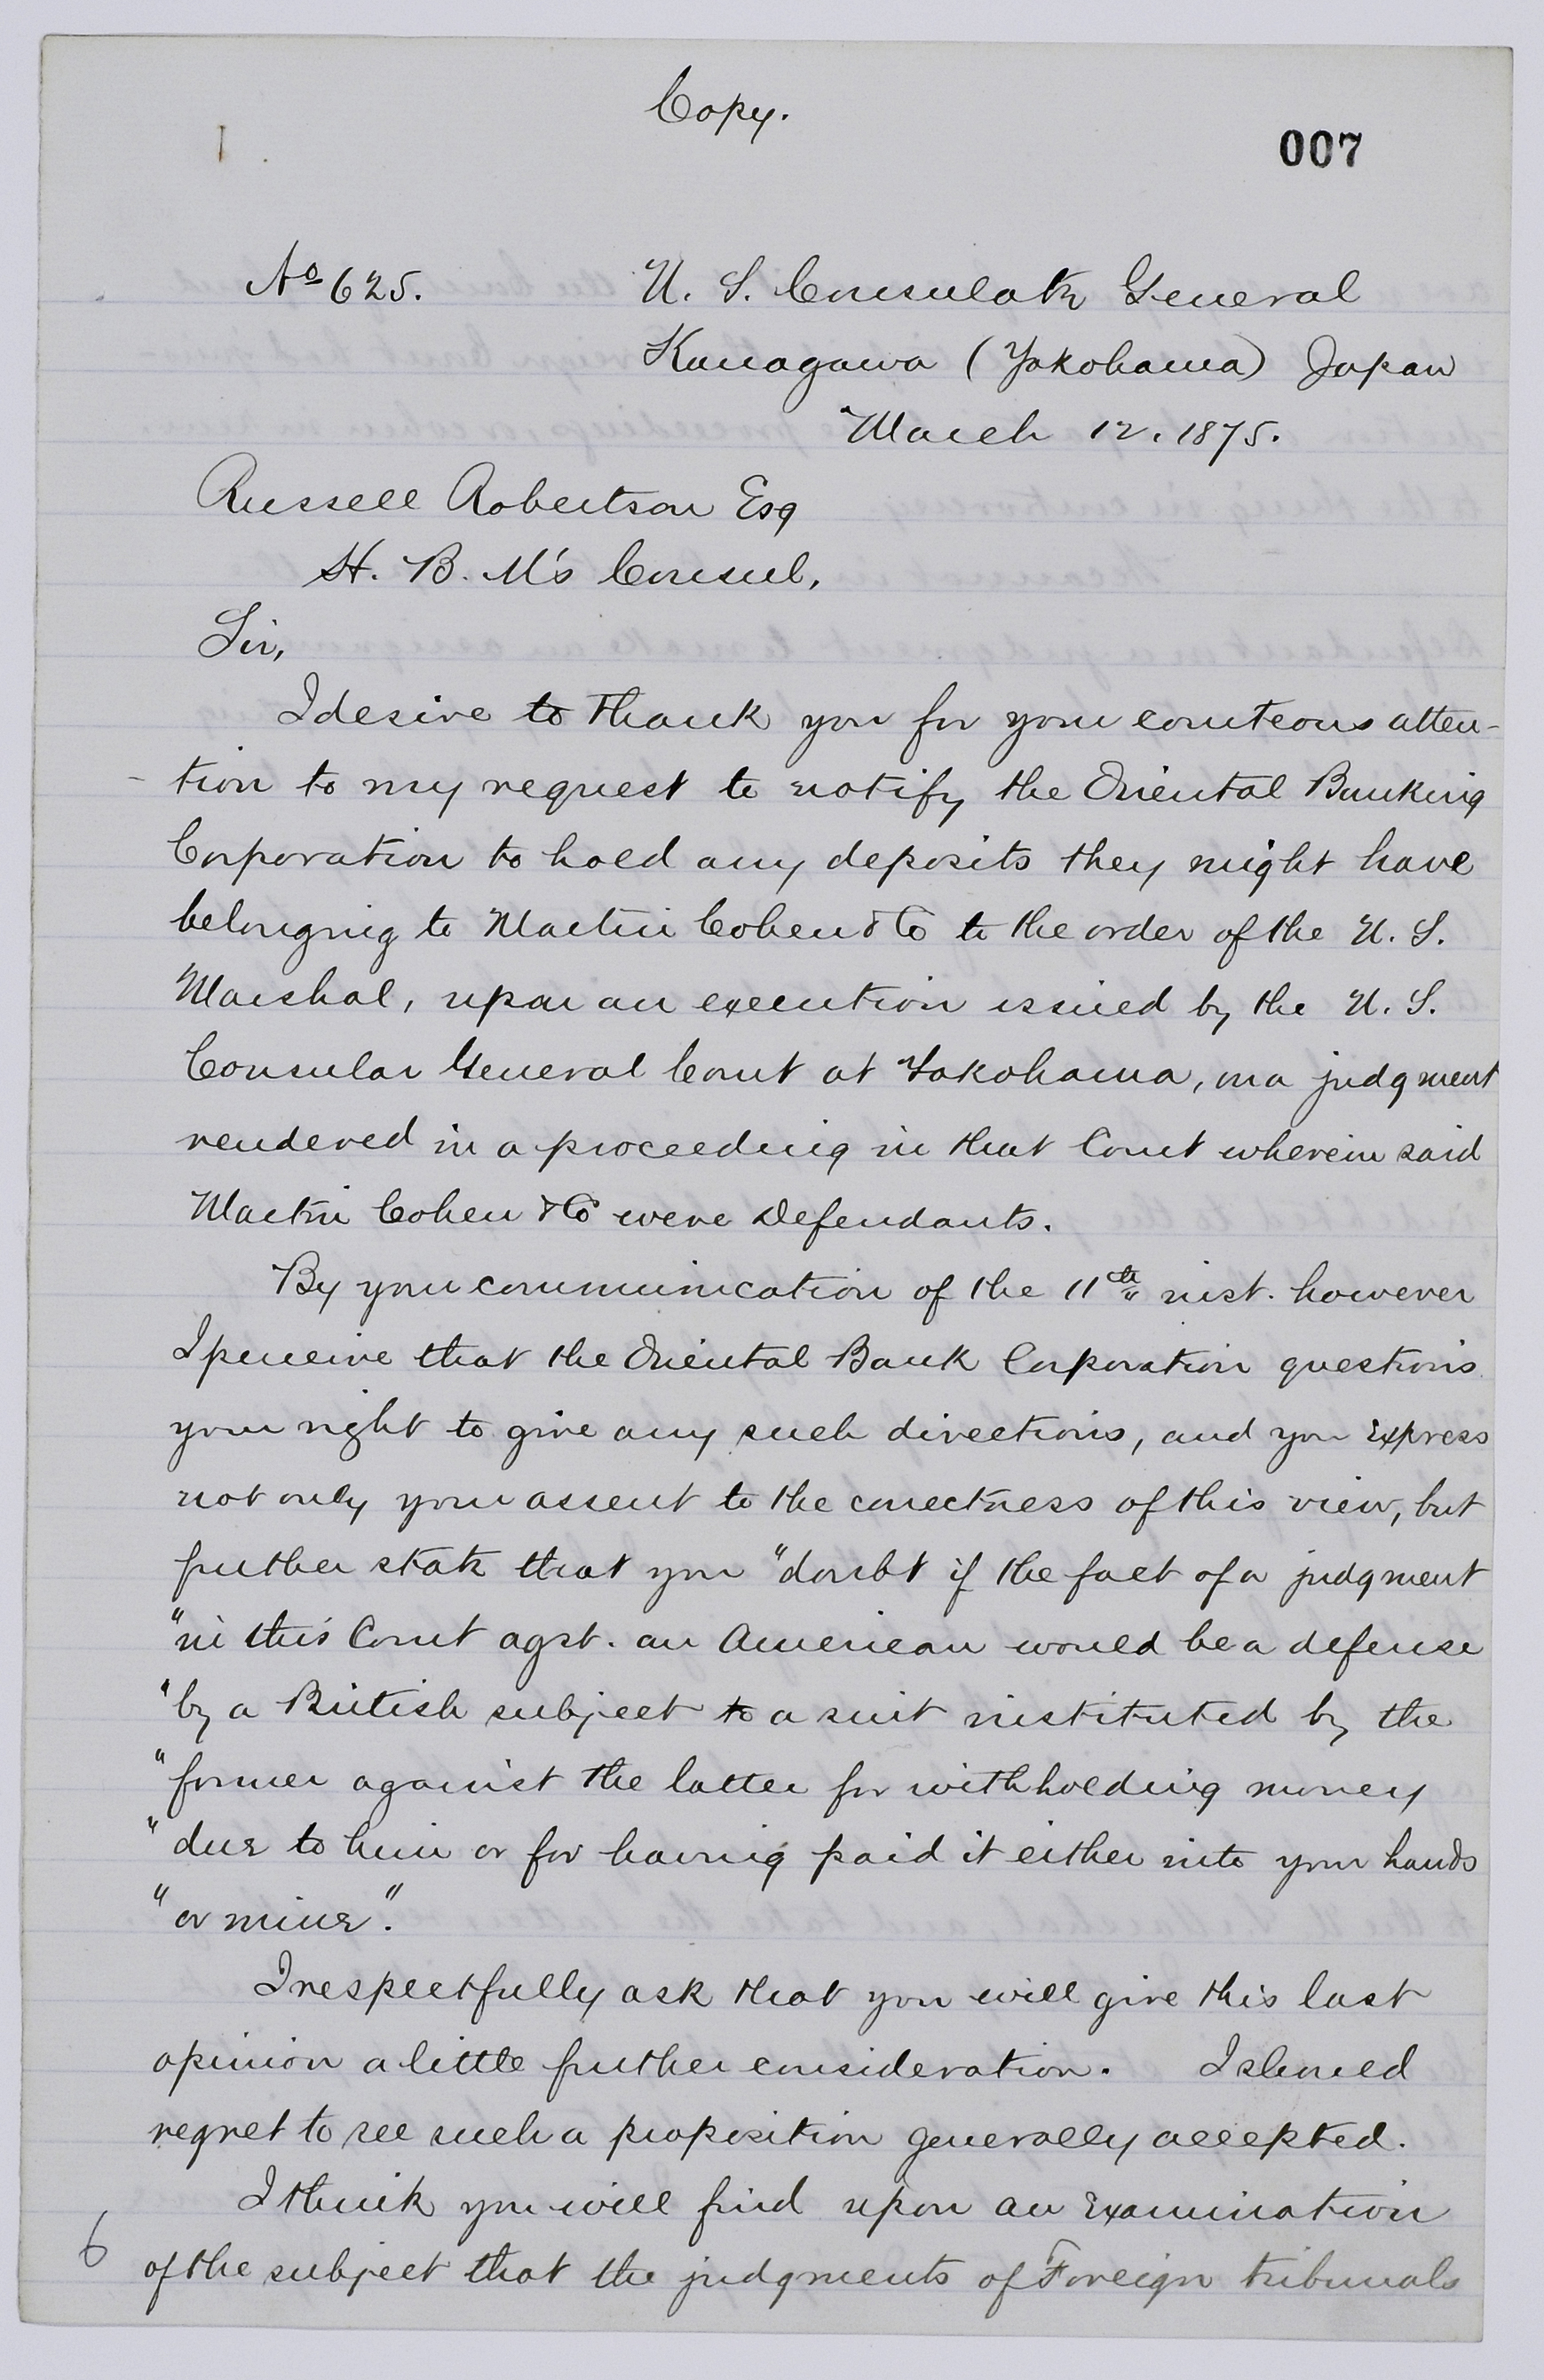 Copy.
007
No 625.
U. S. Consulate General
Kanagawa (Yokohama) Japan
March 12. 1875.
Russell Robertson Esq
H. B. M's Consul,
Sir,
I desire to thank you for your courteous atten-
tion to my request to notify the Oriental Banking
Corporation to hold any deposits they might have
belonging to Martin Cohen & Co to the order of the U. S.
Marshal, upon an execution issued by the U. S.
Consular General Court at Yokohama, on a judgment
rendered in a proceeding in that Court wherein said
Martin Cohen & Co were Defendants.
By your communication of the 11th inst. however
I perceive that the Oriental Bank Corporation questions
your right to give any such directions, and you express
not only your assent to the correctness of this view, but
further state that you "doubt if the fact of a judgment
"in this Court agst. an American would be a defense
"by a British subject to a suit instituted by the
"former against the latter for withholding money
"due to him or for having paid it either into your hands
"or mine".
I respectfully ask that you will give this last
opinion a little further consideration. I should
regret to see such a proposition generally accepted.
I think you will find upon an examination
of the subject that the judgments of Foreign tribunals
6